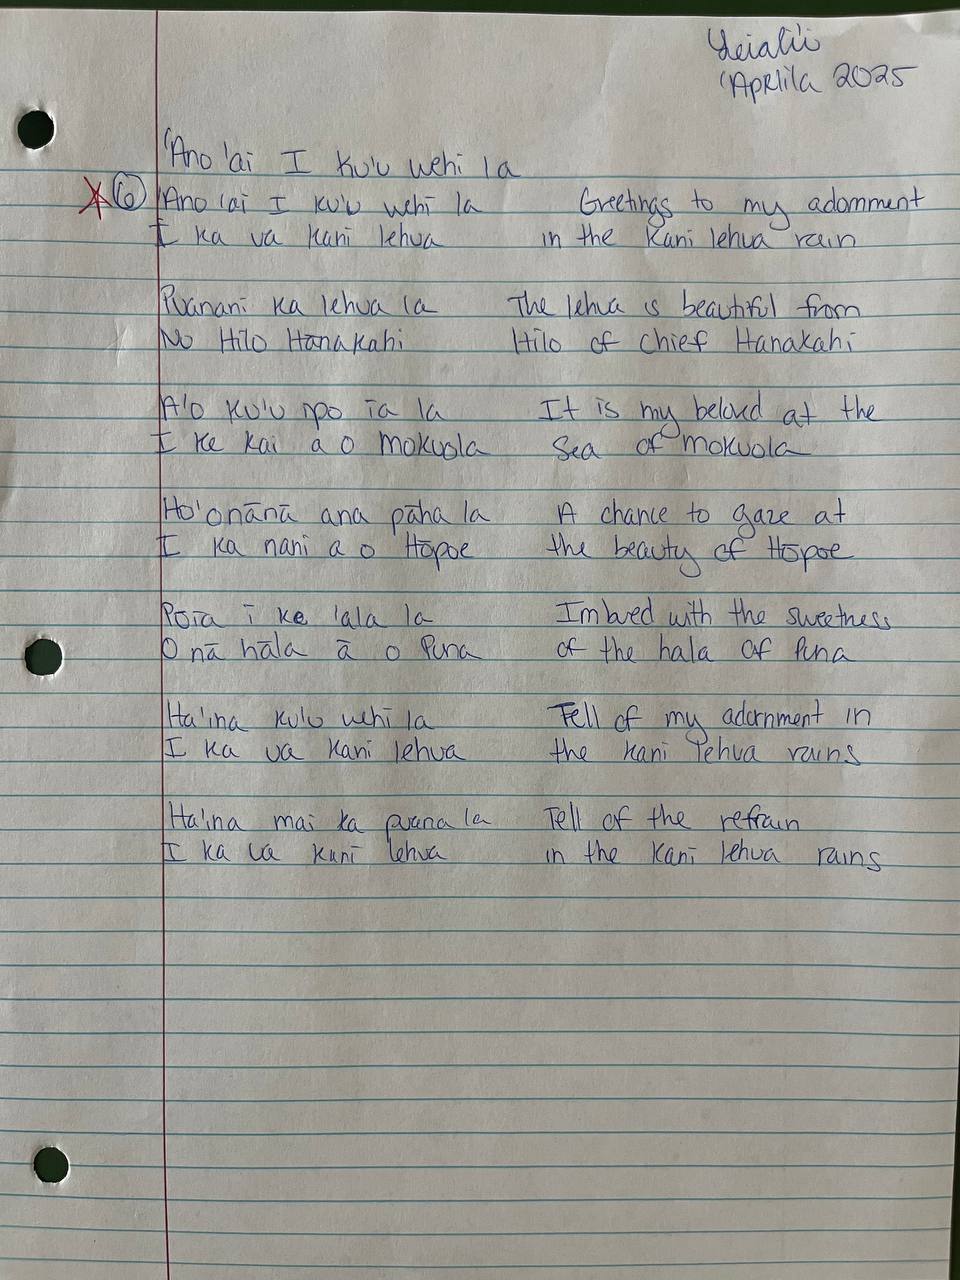 Leiali'i
'Apelila 2025
'Ano 'ai I ku'u wehi la
6 'Ano 'ai I ku'u wehi la Greetings to my adornment
I ka ua kani lehua in the Kani lehua rain
Puanani ka lehua la The lehua is beautiful from
No Hilo Hanakahi Hilo of chief Hanakahi
A'o ku'u ipo ia la It is my beloved at the
I ke kai a o Mokuola Sea of mokuola
Ho'onānā ana pāha la A chance to gaze at
I ka nani a o Hōpoe the beauty of Hōpoe
Poīa i ke 'ala la Imbued with the sweetness
O nā hāla ā o Puna of the hala of Puna
Ha'ina ku'u wehi la Tell of my adornment in
I ka ua kani lehua the kani lehua rains
Ha'ina mai ka puana la Tell of the refrain
I ka ua kani lehua in the kani lehua rains